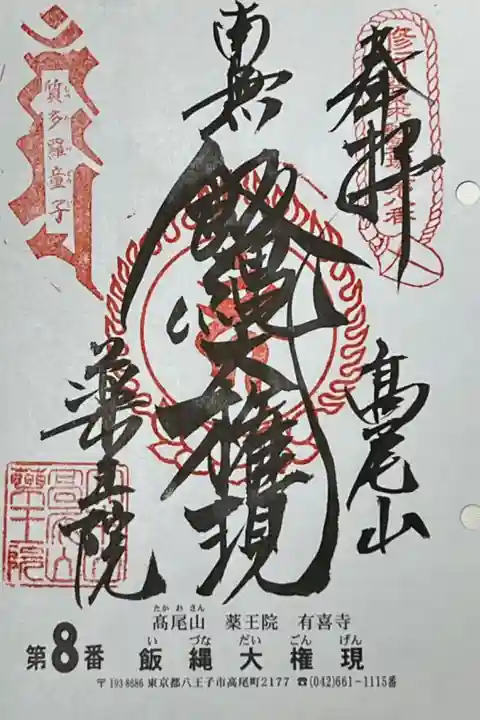 奉拝
髙尾山
南無
飯縄大権現
薬王院
質多羅童子
たかおさん
髙尾山 薬王院 有喜寺
いづなだいごんげん
第8番 飯縄大権現
〒193-8686 東京都八王子市高尾町2177 ☎(042)661-1115番